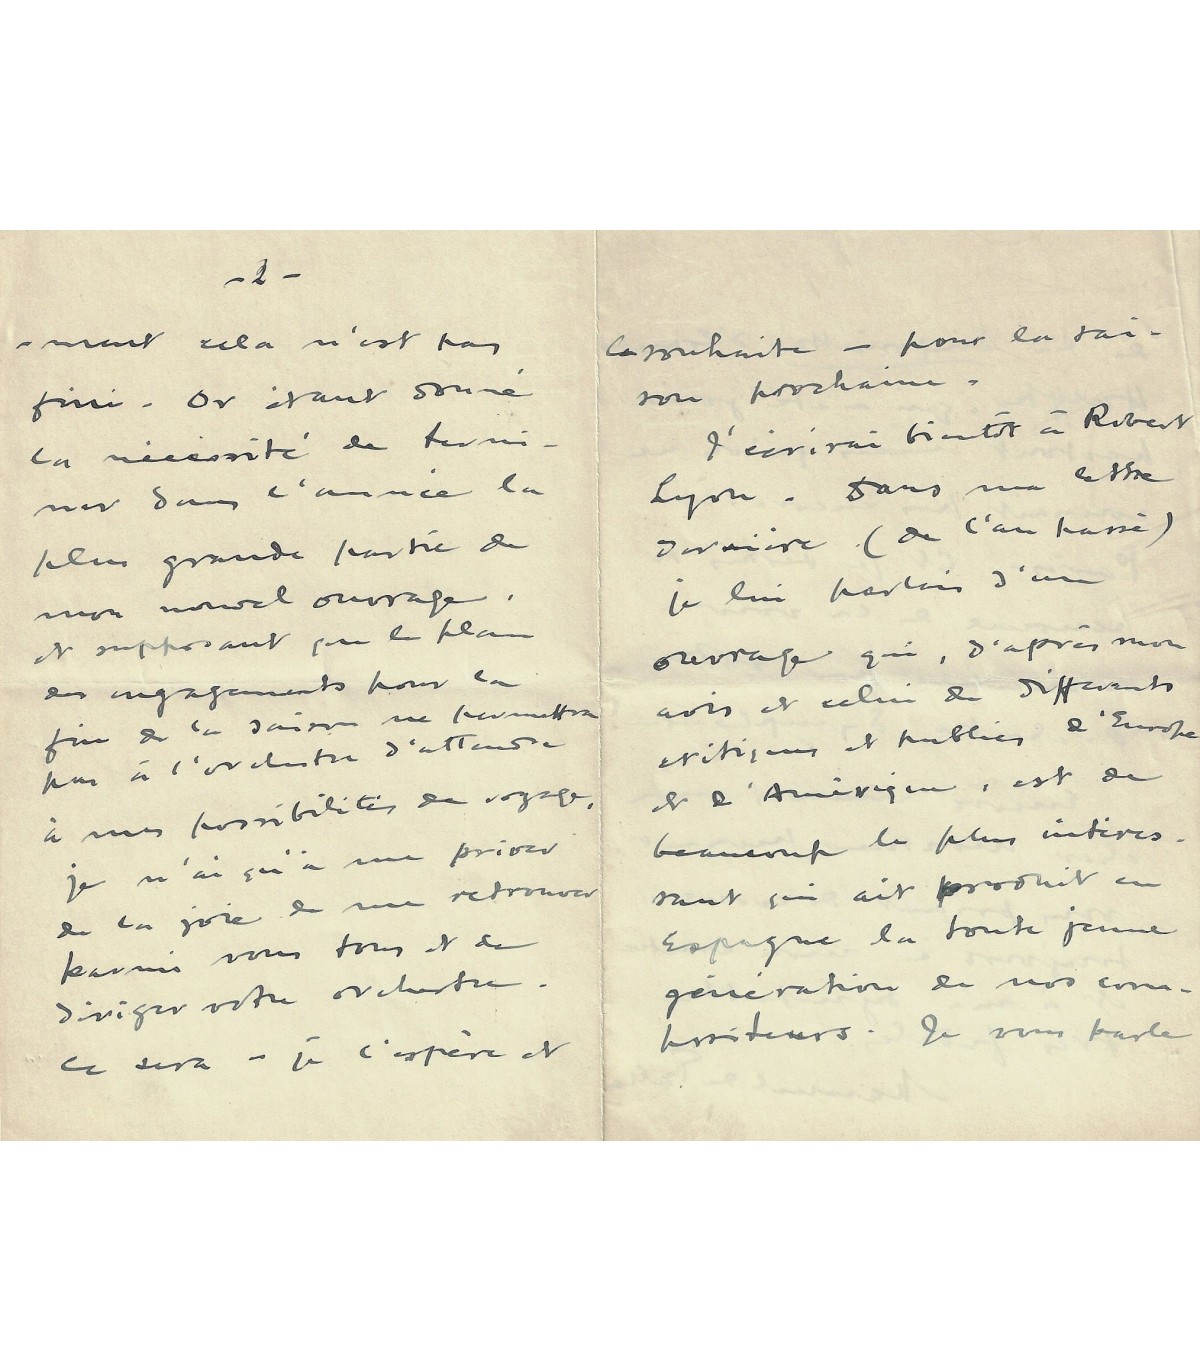 - 2 -
-ment cela n'est pas
fini. Or étant donné
la nécessité de termi-
ner dans l'année la
plus grande partie de
mon nouvel ouvrage,
et supposant que le plan
des engagements pour la
fin de la saison ne permettra
pas à l'orchestre d'attendre
à mes possibilités de voyage,
je n'ai qu'à me priver
de la joie de me retrouver
parmi vous tous et de
diriger votre orchestre.
Ce sera - je l'espère et
le souhaite - pour la sai-
son prochaine.
J'écrirai bientôt à Robert
Lyon. Dans ma lettre
dernière (de l'an passé)
je lui parlais d'un
ouvrage qui, d'après mon
avis et celui de différents
critiques et publics d'Europe
et d'Amérique, est de
beaucoup le plus intéres-
sant qui ait produit en
Espagne la toute jeune
génération de nos com-
positeurs. Je vous parle